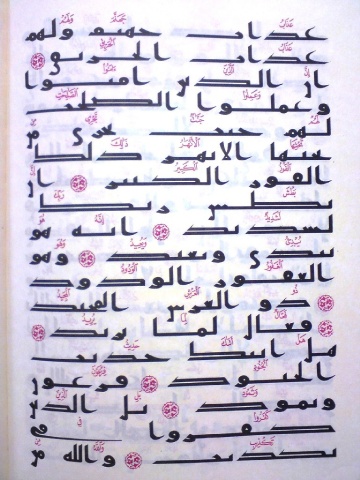 عذاب جهنم ولهم
عذاب الحريق
ان الذين امنوا
وعملوا الصلحت
لهم جنت تجري م
ن تحتها الانهر ذلك
الفوز الكبير ان
بطش ربك
لشديد انه هو
يبدئ ويعيد وهو
الغفور الودود
ذو العرش المجيد
فعال لما يريد
هل اتيك حديث
الجنود فرعون
وثمود بل الذين
كفروا في
تكذيب والله م